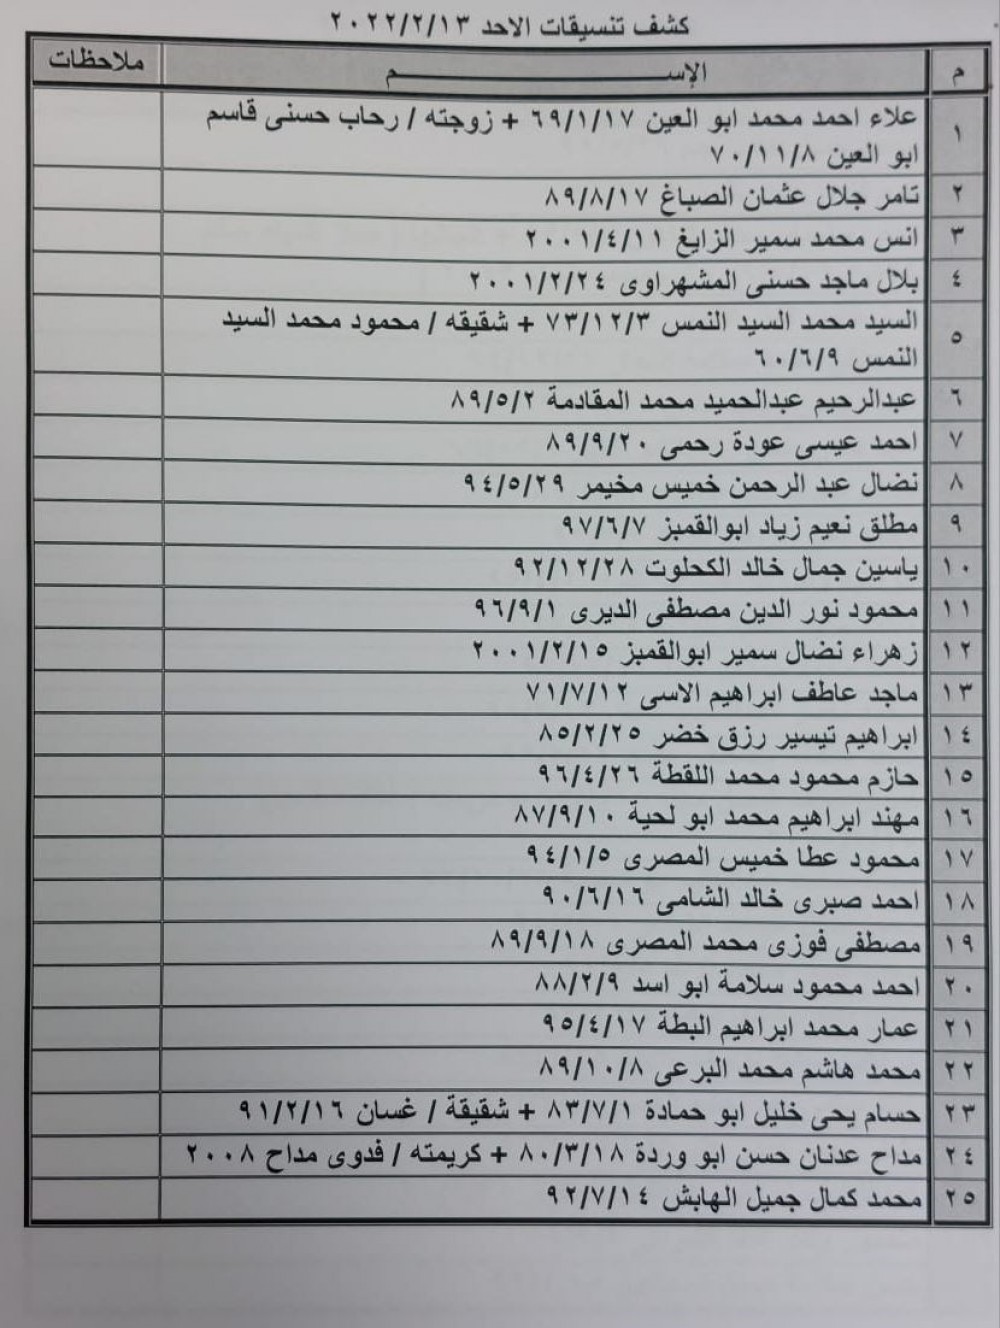 كشف تنسيقات الاحد ٢٠٢٢/٢/١٣
م الإســـــــــم ملاحظات
١ علاء احمد محمد ابو العين ٦٩/١/١٧ + زوجته / رحاب حسنى قاسم
ابو العين ٧٠/١١/٨
٢ تامر جلال عثمان الصباغ ٨٩/٨/١٧
٣ انس محمد سمير الزايغ ٢٠٠١/٤/١١
٤ بلال ماجد حسنى المشهراوى ٢٠٠١/٢/٢٤
٥ السيد محمد السيد النمس ٧٣/١٢/٣ + شقيقه / محمود محمد السيد
النمس ٦٠/٦/٩
٦ عبدالرحيم عبدالحميد محمد المقادمة ٨٩/٥/٢
٧ احمد عيسى عودة رحمى ٨٩/٩/٢٠
٨ نضال عبد الرحمن خميس مخيمر ٩٤/٥/٢٩
٩ مطلق نعيم زياد ابوالقمبز ٩٧/٦/٧
١٠ ياسين جمال خالد الكحلوت ٩٢/١٢/٢٨
١١ محمود نور الدين مصطفى الديرى ٩٦/٩/١
١٢ زهراء نضال سمير ابوالقمبز ٢٠٠١/٢/١٥
١٣ ماجد عاطف ابراهيم الاسى ٧١/٧/١٢
١٤ ابراهيم تيسير رزق خضر ٨٥/٢/٢٥
١٥ حازم محمود محمد اللقطة ٩٦/٤/٢٦
١٦ مهند ابراهيم محمد ابو لحية ٨٧/٩/١٠
١٧ محمود عطا خميس المصرى ٩٤/١/٥
١٨ احمد صبرى خالد الشامى ٩٠/٦/١٦
١٩ مصطفى فوزى محمد المصرى ٨٩/٩/١٨
٢٠ احمد محمود سلامة ابو اسد ٨٨/٢/٩
٢١ عمار محمد ابراهيم البطة ٩٥/٤/١٧
٢٢ محمد هاشم محمد البرعى ٨٩/١٠/٨
٢٣ حسام يحى خليل ابو حمادة ٨٣/٧/١ + شقيقة / غسان ٩١/٢/١٦
٢٤ مداح عدنان حسن ابو وردة ٨٠/٣/١٨ + كريمته / فدوى مداح ٢٠٠٨
٢٥ محمد كمال جميل الهابش ٩٢/٧/١٤